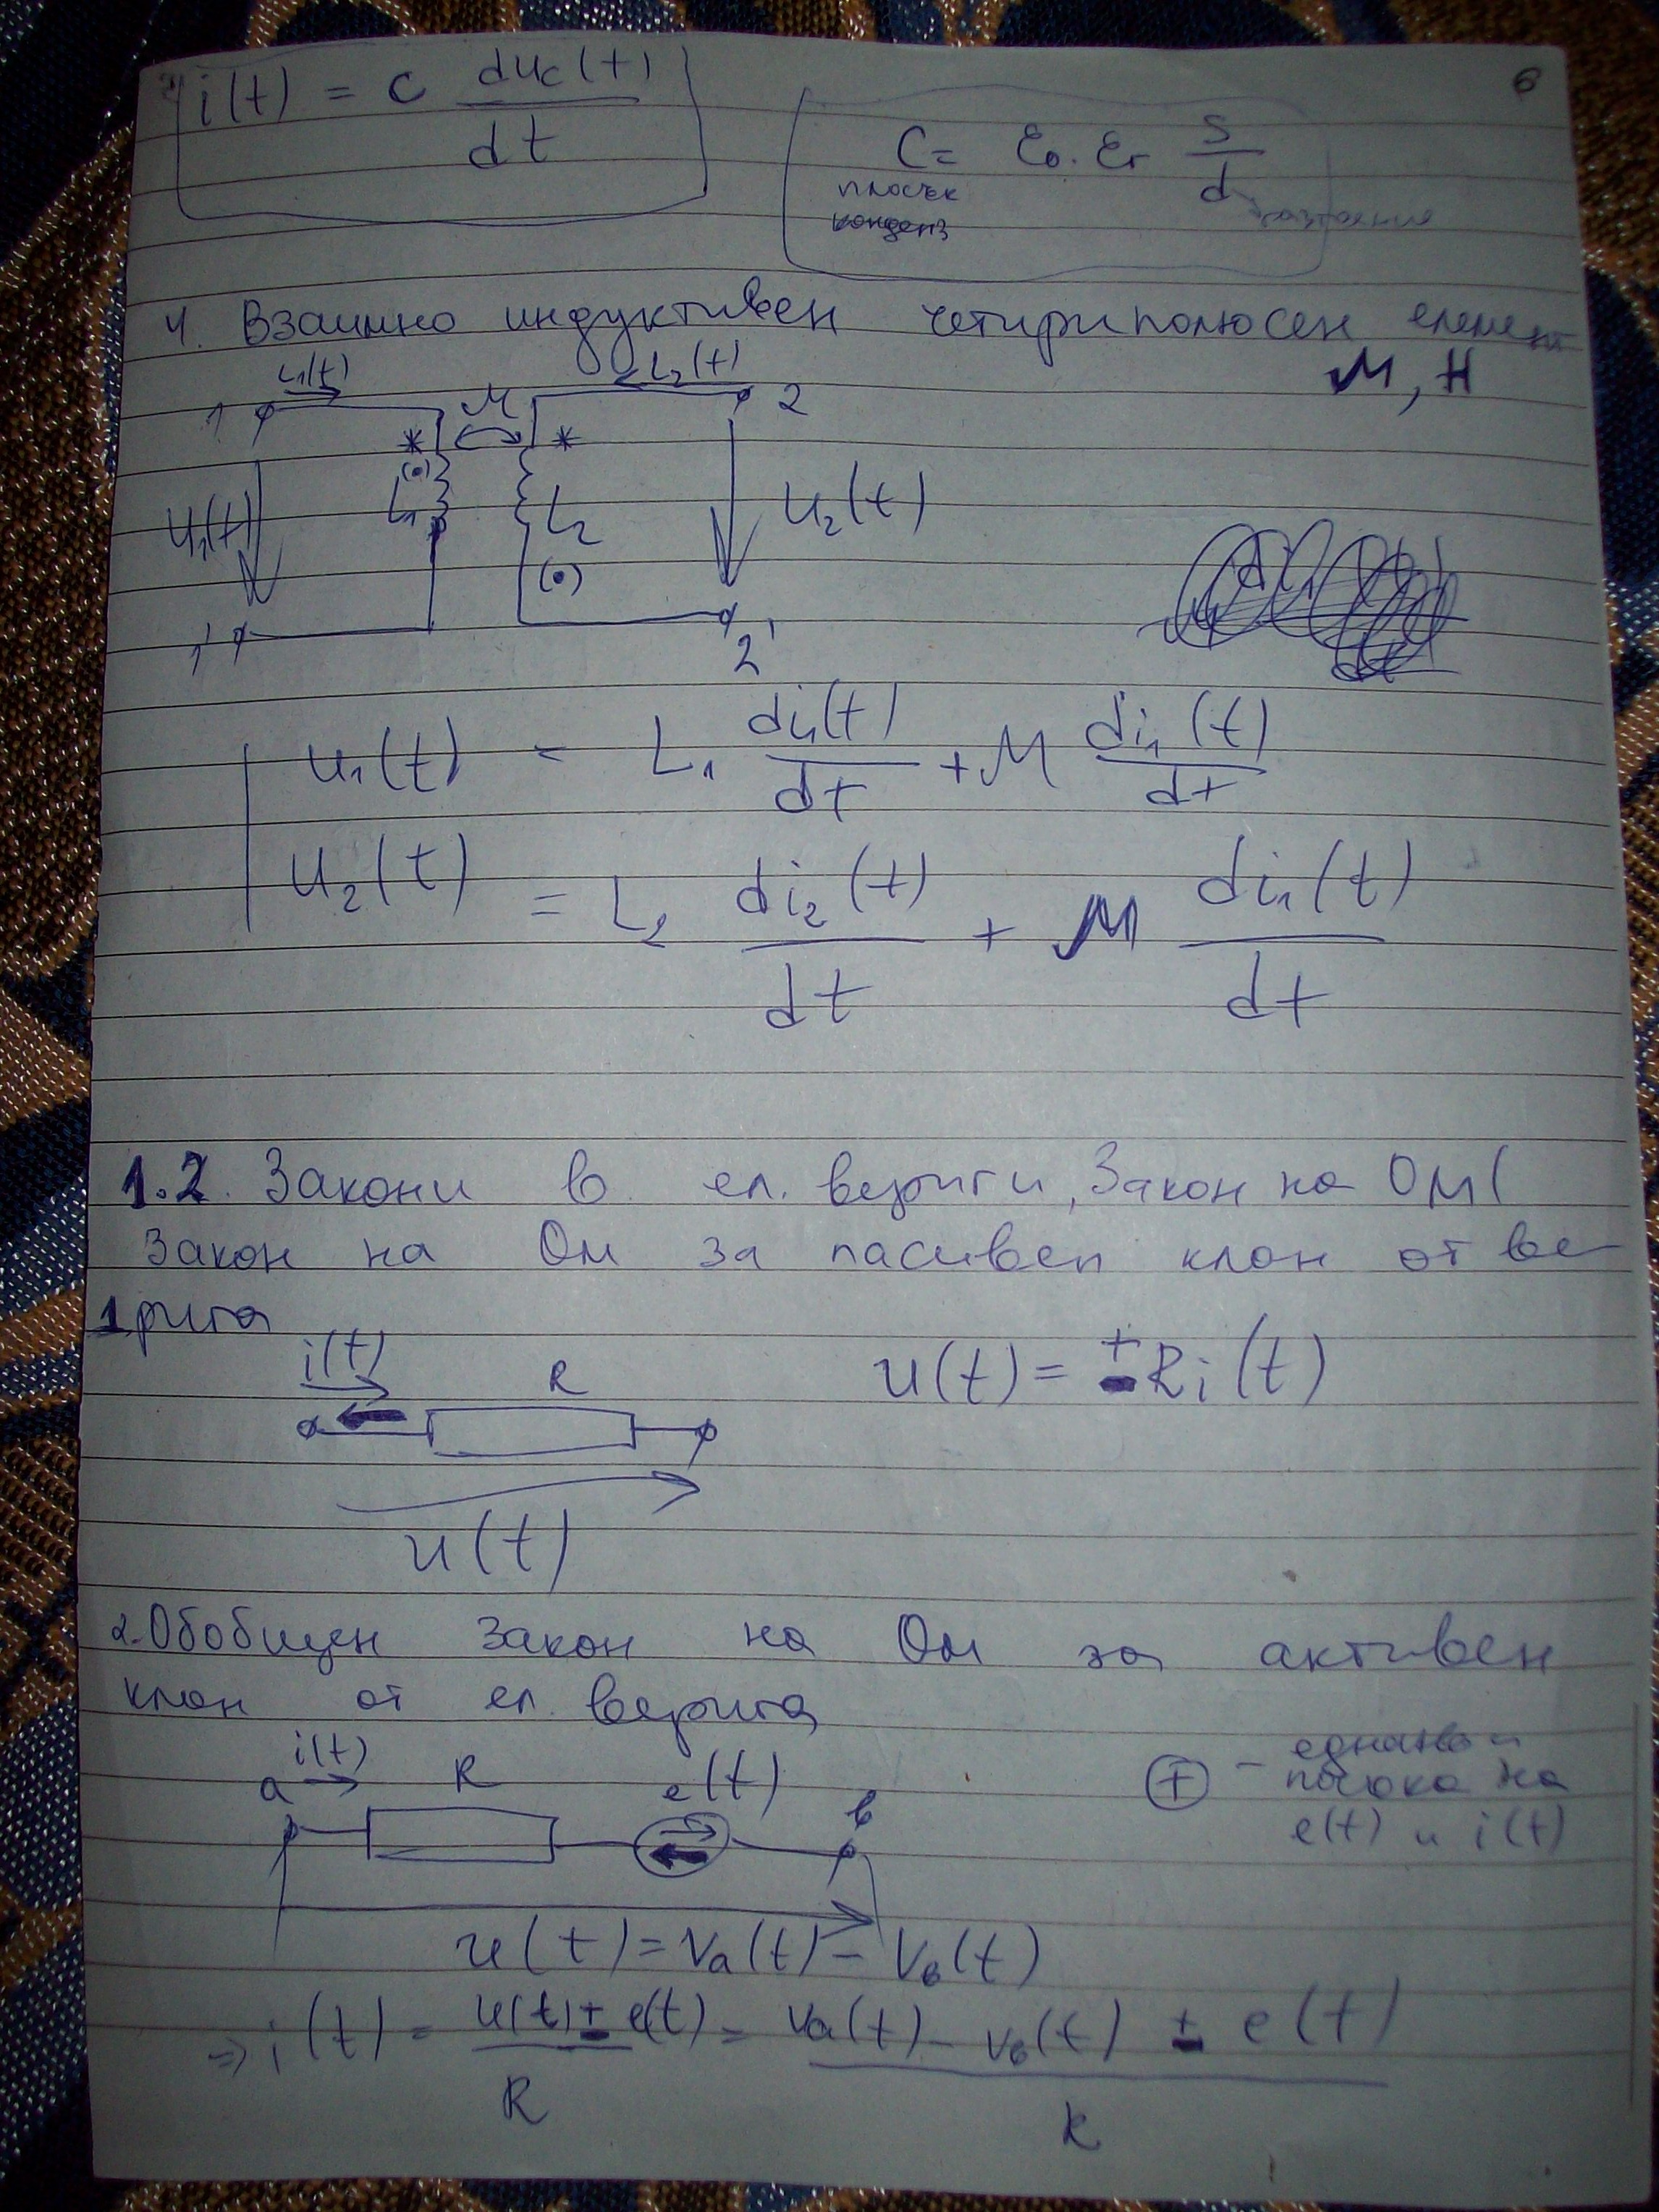 i(t) = C duc(t)/dt
6
C = ε0 . εr S/d
плосък
конденз
4. Взаимно индуктивен четириполюсен елемент
M, H
i1(t) M i2(t)
1 * * 2
u1(t) (•) L1 L2 u2(t)
(•)
1' 2'
u1(t) = L1 di1(t)/dt + M di1(t)/dt
u2(t) = L2 di2(t)/dt + M di1(t)/dt
1.2. Закони в ел. вериги, Закон на Ом(
Закон на Ом за пасивен клон от ве-
1 рига
i(t) R u(t) = ± Ri(t)
u(t)
2. Обобщен закон на Ом за активен
клон от ел. верига
a i(t) R e(t) в
⊕ - еднакви
посока на
e(t) и i(t)
u(t) = Va(t) - Vв(t)
⇒ i(t) = u(t) ± e(t)/R = Va(t) - Vв(t) ± e(t)/R